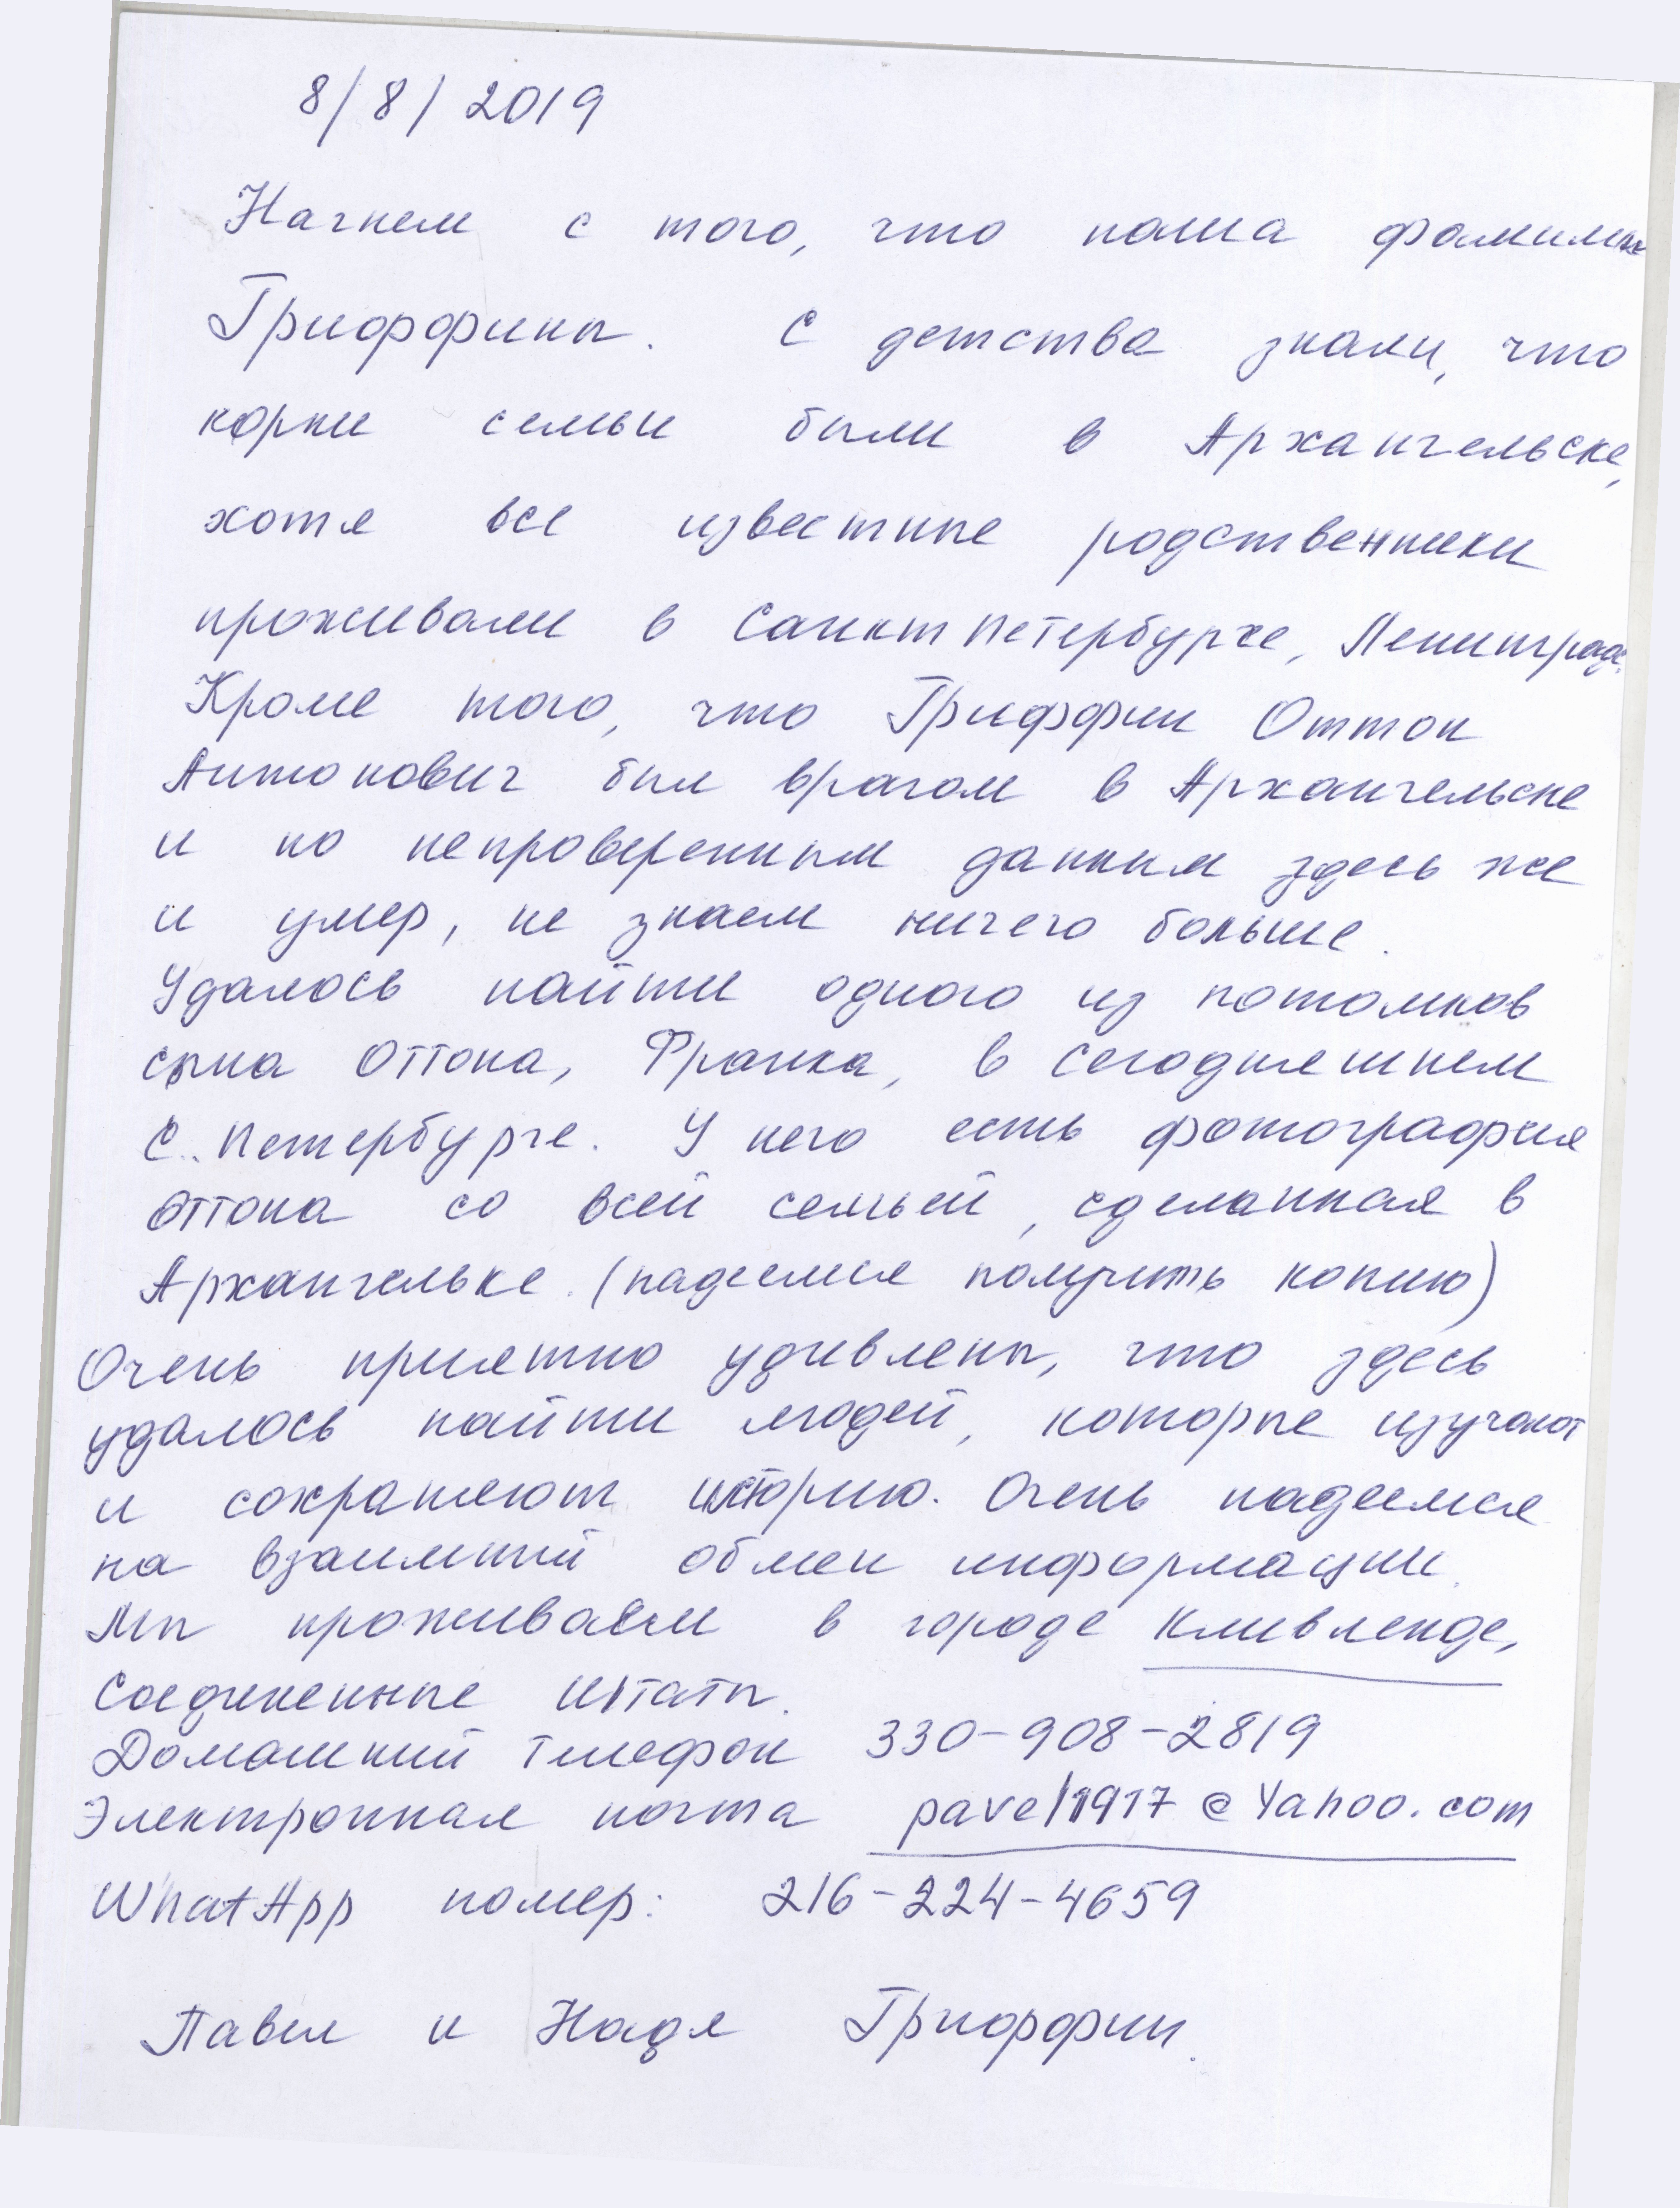 8/8/2019
Начнем с того, что наша фамилия
Гриффины. С детства знали, что
корни семьи были в Архангельске,
хотя все известные родственники
проживали в Санкт Петербурге, Ленинграде.
Кроме того, что Гриффин Оттон
Антонович был врачом в Архангельске
и по непроверенным данным здесь же
и умер, не знаем ничего больше.
Удалось найти одного из потомков
сына Оттона, Франка, в сегодняшнем
С. Петербурге. У него есть фотография
Оттона со всей семьей, сделанная в
Архангельке. (надеемся получить копию)
Очень приятно удивлены, что здесь
удалось найти людей, которые изучают
и сохраняют историю. Очень надеемся
на взаимный обмен информации.
Мы проживаем в городе Кливленде,
Соединенные Штаты.
Домашний телефон 330-908-2819
Электронная почта pavel1917@Yahoo.com
WhatApp номер: 216-224-4659
Павел и Надя Гриффин.